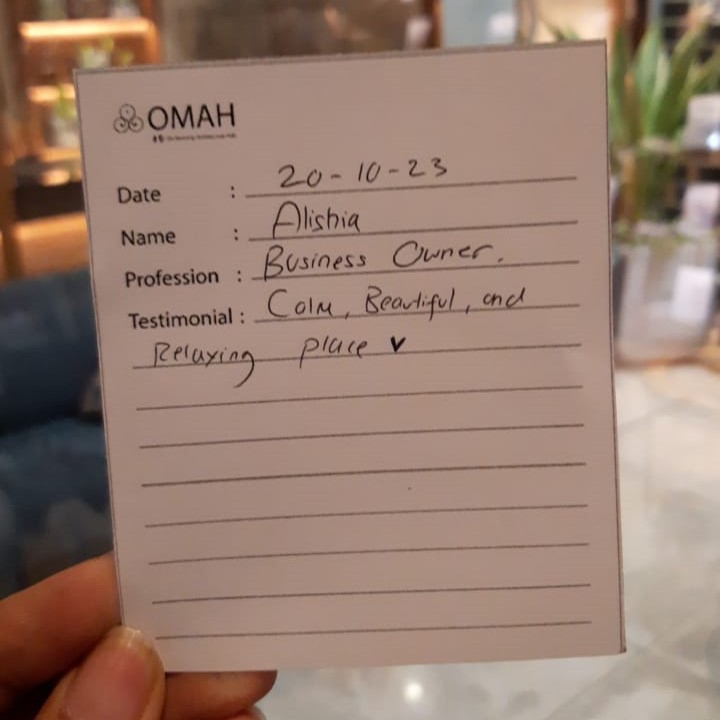 OMAH
Date : 20-10-23
Name : Alishia
Profession : Business Owner.
Testimonial : Calm, Beautiful, and
Relaxing place